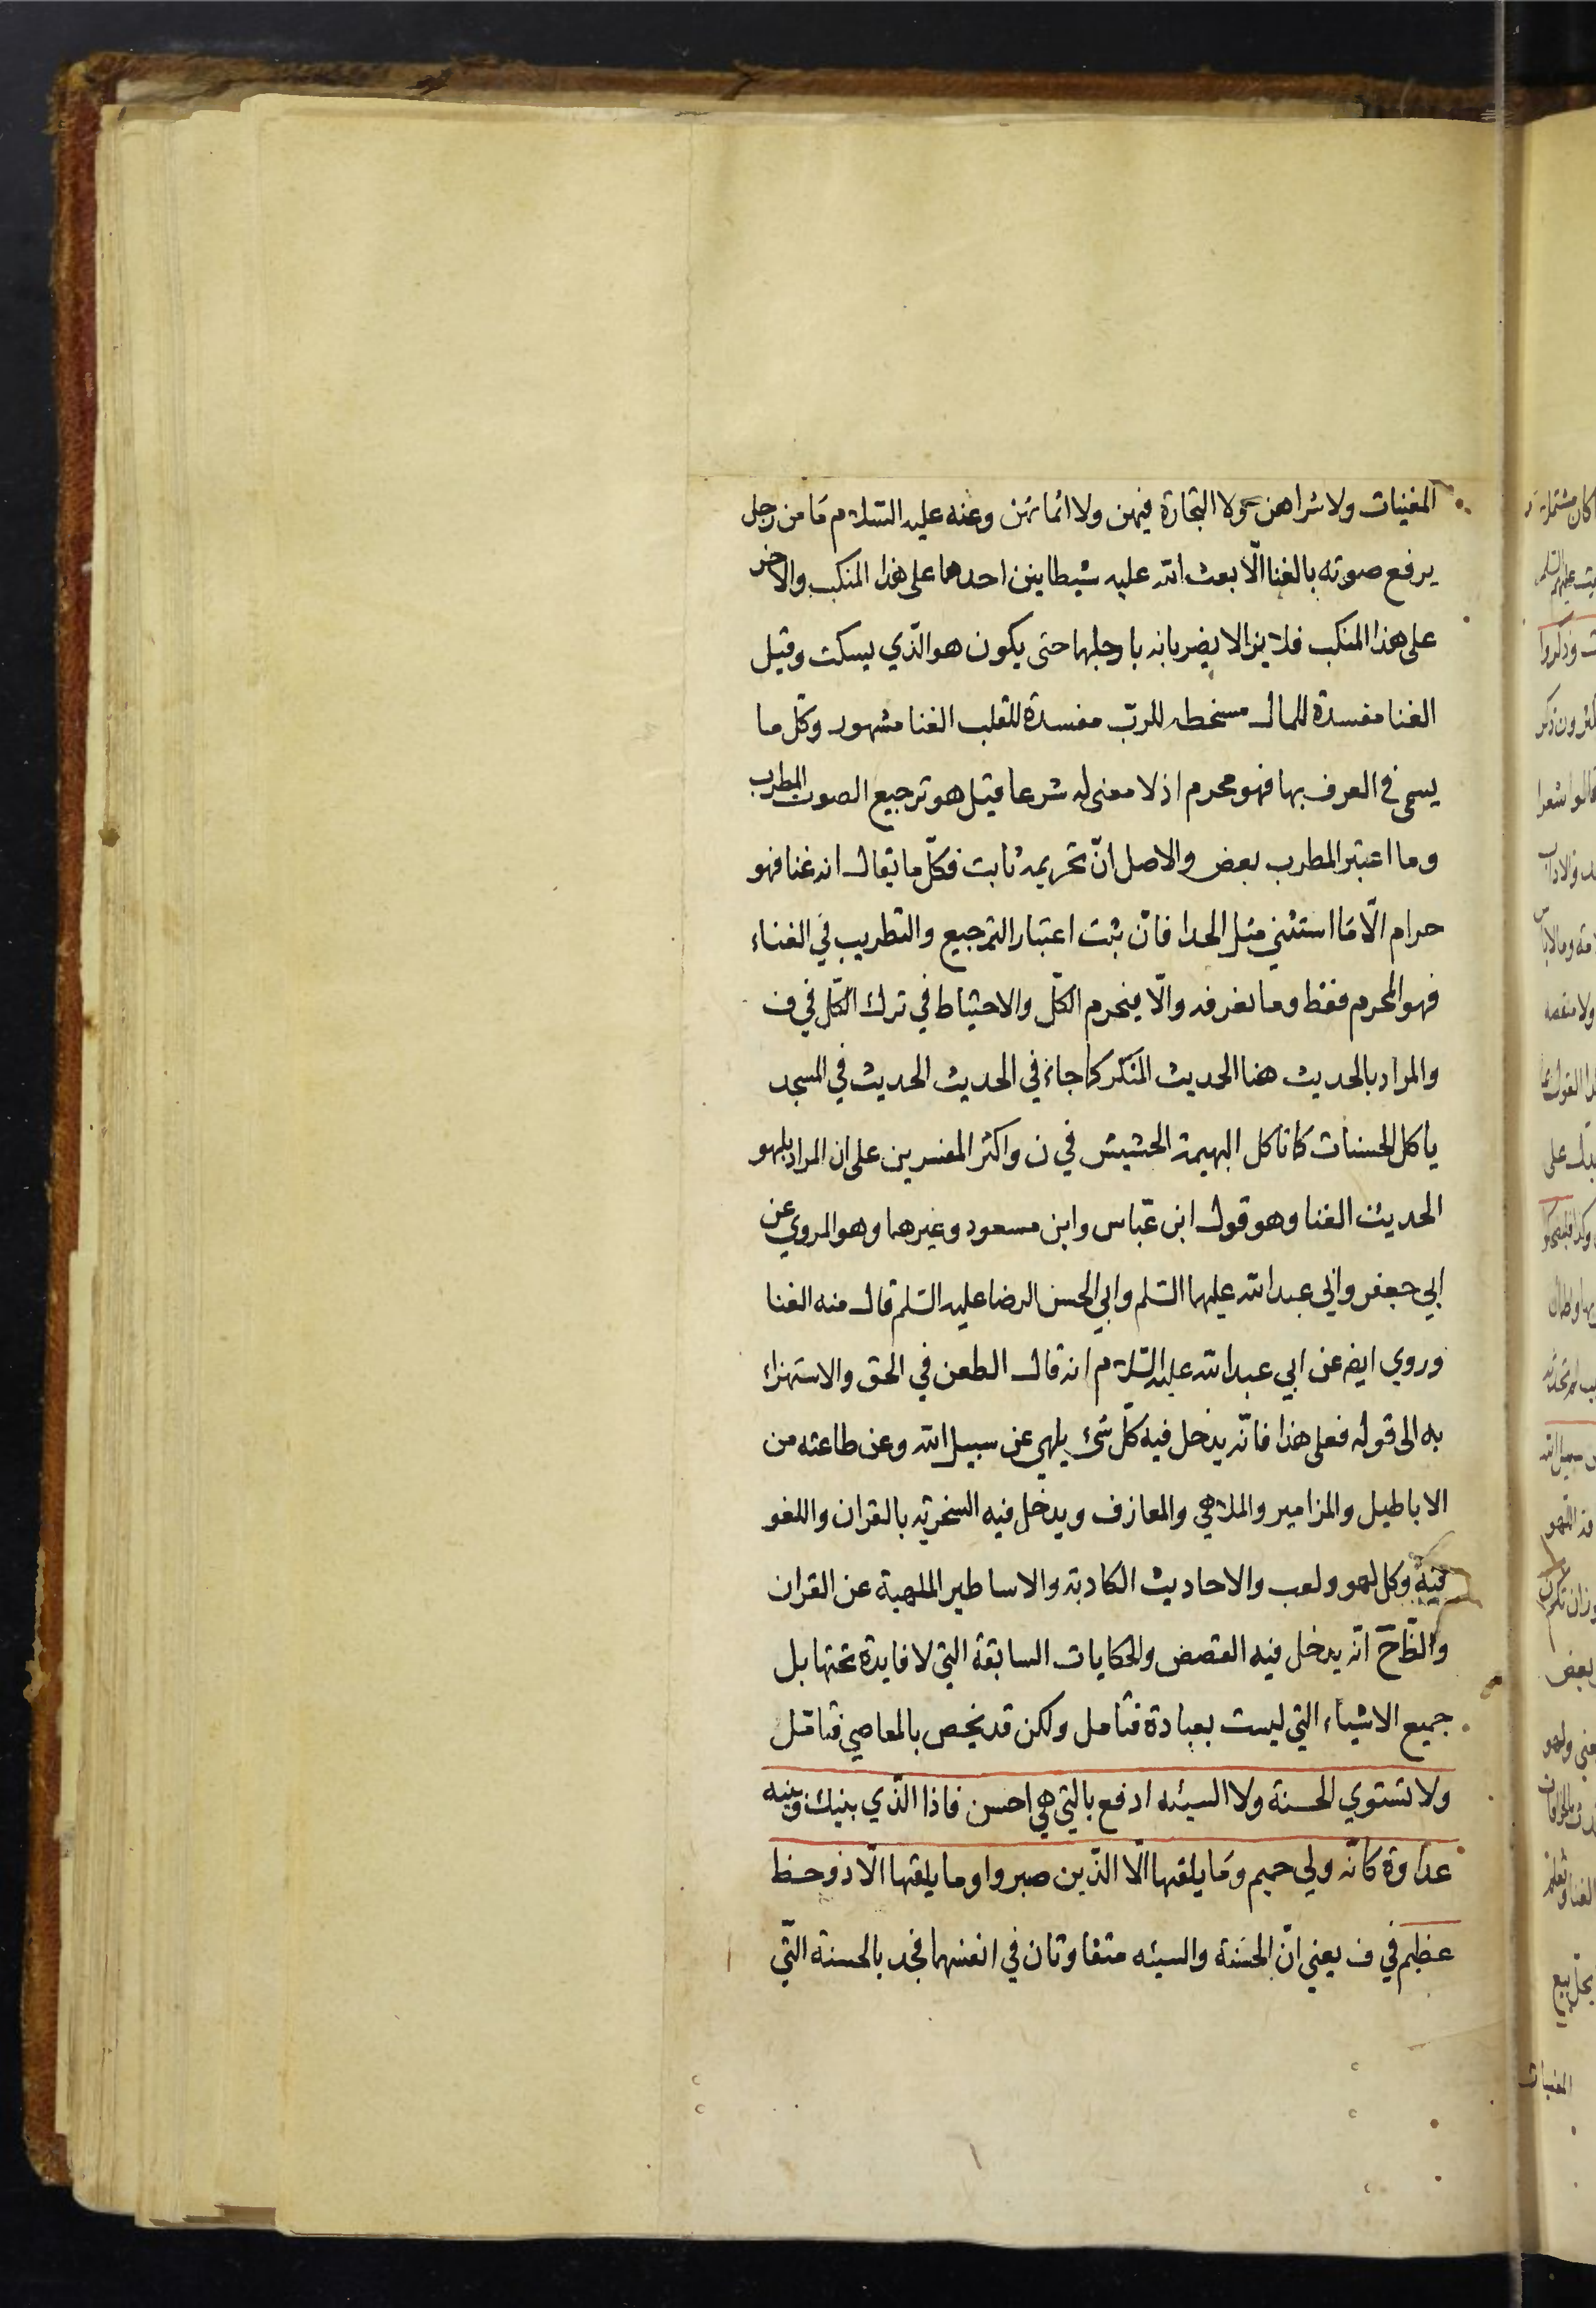 المغنيات ولا شراهن ولا التجارة فيهن ولا اثمانهن وعنه عليه السلام مَا من رجل
يرفع صوته بالغنا الّا بعث الله عليه شيطانين احدهما على هذا المنكب والاخر
على هذا المنكب فلا يزالا يضربانه بارجلهما حتى يكون هو الّذي يسكت وقيل
الغنا مفسدة للمال مسخطه للربّ مفسدة للقلب الغنا مشهور وكل ما
يسمى في العرف بها فهو محرم اذ لا معنى له شرعا قيل هو ترجيع الصوت المطرب
وما اعتبر المطرب بعض والاصل انّ تحريمه ثابت فكلّ ما يقال انه غنا فهو
حرام الّا مَا استثني مثل الحدا فانّ ثبت اعتبار الترجيع والتطريب في الغناء
فهو المحرم فقط وما نعرفه والّا فيحرم الكلّ والاحتياط في ترك الكّل في ف
والمراد بالحديث هنا الحديث المنكر كما جاء في الحديث الحديث في المسجد
ياكل الحسنات كما تاكل البهيمة الحشيش في ن واكثر المفسرين على ان المراد بلهو
الحديث الغنا وهو قول ابن عبّاس وابن مسعود وغيرهما وهو المروي عن
ابي جعفر وابي عبد الله عليهما السّلم وابي الحسن الرضا عليه السّلم قال منه الغنا
وروي ايضه عن ابي عبد الله عليه السّلام انه قال الطعن في الحق والاستهزاء
به الى قوله فعلى هذا فانّه يدخل فيه كلّ شيء يلهي عن سبيل الله وعن طاعته من
الاباطيل والمزامير والملاهي والمعازف ويدخل فيه السخرية بالقران واللغو
فيه وكل لهو ولعب والاحاديث الكاذبة والاساطير الملهية عن القران
والظّاهر انّه يدخل فيه القصص والحكايات السابقة التي لا فايدة تحتها بل
جميع الاشياء التي ليست بعبادة فتامل ولكن قد يخص بالمعاصي فتامّل
ولا تستوي الحسنة ولا السيئه ادفع بالتي هي احسن فاذا الّذي بينك وبينه
عداوة كانّه ولي حميم ومَا يلقها الّا الذّين صبروا وما يلقها الّا ذو حظ
عظيم في ف يعني انّ الحسَنة والسيئه متفاوتان في انفسهما فخذ بالحسنة التّي